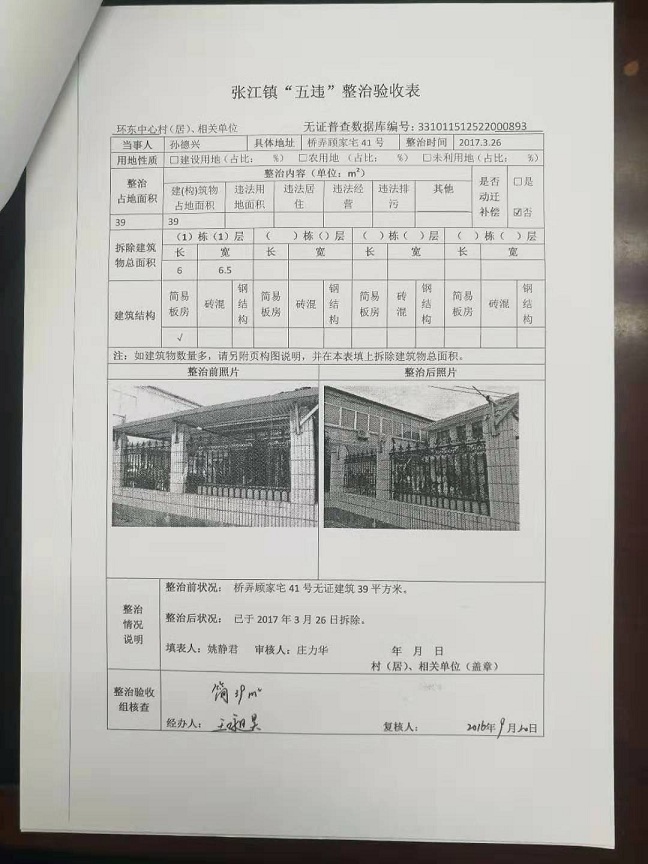 张江镇“五违”整治验收表
环东中心村(居)、相关单位 无证普查数据库编号：331011512522000893
当事人 孙德兴 具体地址 桥弄顾家宅 41 号 整治时间 2017.3.26
用地性质 □建设用地(占比： %) □农用地 (占比： %) □未利用地(占比： %)
整治占地面积 整治内容（单位：m²） 是否动迁补偿 □是
建(构)筑物占地面积 违法用地面积 违法居住 违法经营 违法排污 其他 ☑否
39 39
拆除建筑物总面积 （1）栋（1）层 （ ）栋（ ）层 （ ）栋（ ）层 （ ）栋（ ）层
长 宽 长 宽 长 宽 长 宽
6 6.5
建筑结构 简易板房 砖混 钢结构 简易板房 砖混 钢结构 简易板房 砖混 钢结构 简易板房 砖混 钢结构
√
注：如建筑物数量多，请另附页构图说明，并在本表填上拆除建筑物总面积。
整治前照片 整治后照片
整治情况说明
整治前状况： 桥弄顾家宅 41 号无证建筑 39 平方米。
整治后状况： 已于 2017 年 3 月 26 日拆除。
填表人：姚静君 审核人：庄力华 年 月 日
村（居）、相关单位（盖章）
整治验收组核查
简 39 m²
经办人： 复核人： 2016年9月20日